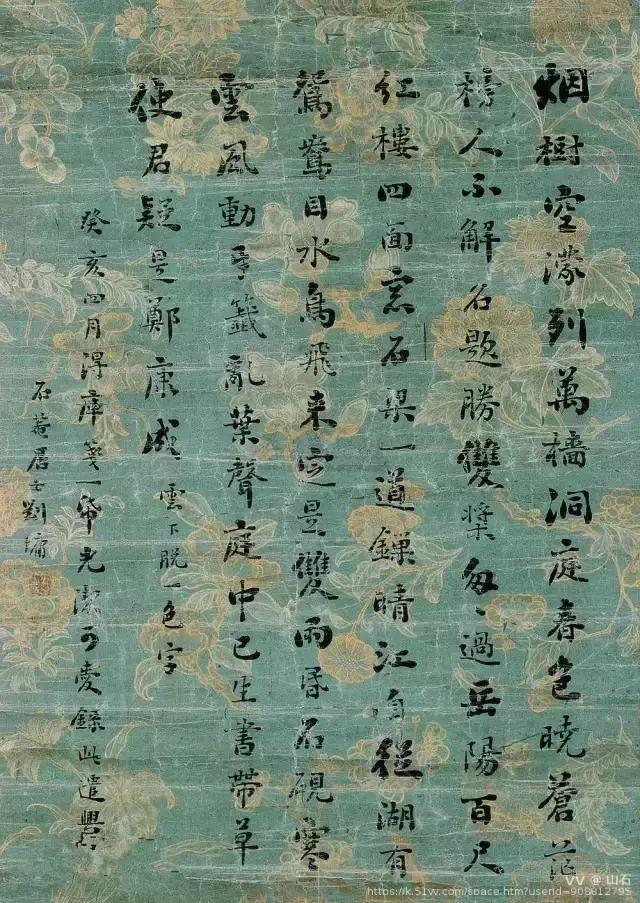 烟樹空濛列萬檣洞庭春色曉蒼茫
榜人不解名題勝雙槳匆、過岳陽百尺
紅樓四面窓石梁一道鏁晴江自從湖有
鴛鴦目水鳥飛來定是雙雨昏石硯寒
雲風動牙籤亂葉聲庭中已生書帶草
使君疑是鄭康成 雲下脫一色字
癸亥四月得庫箋一帋光潔可愛錄此遣興
石菴居士劉墉
VV @ 山石